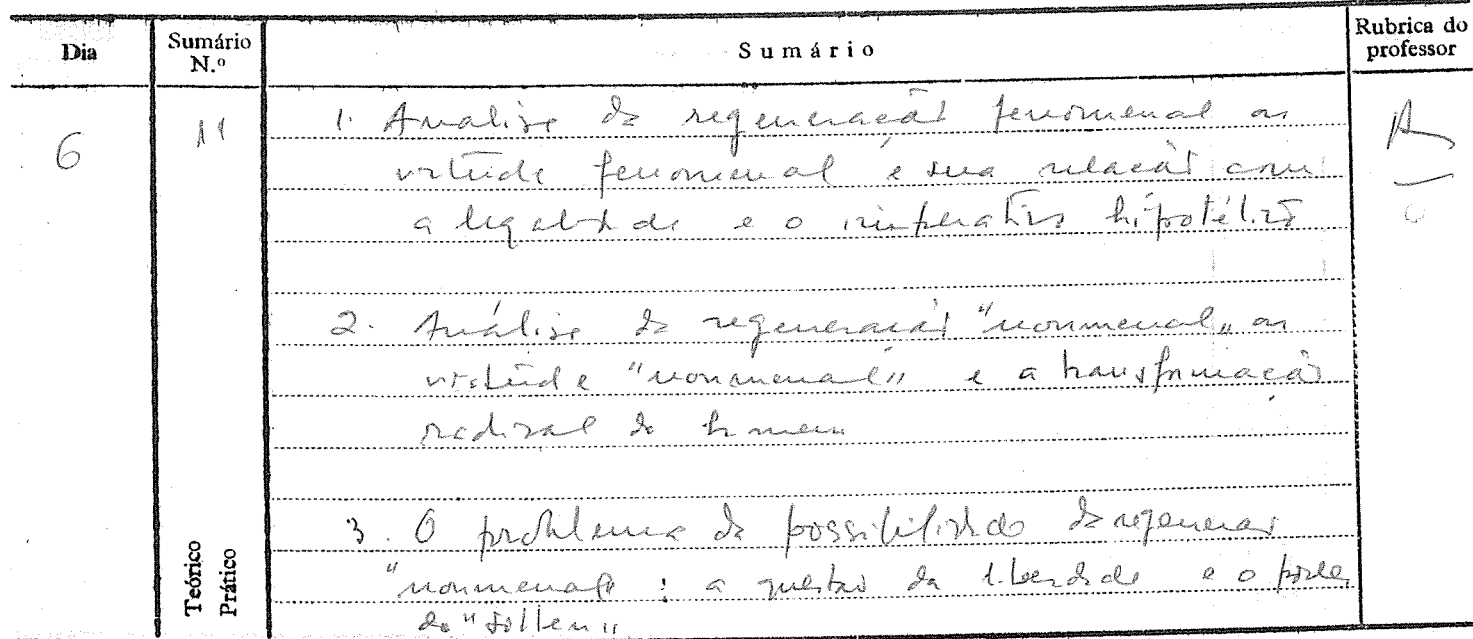 Dia
Sumário N.º
Sumário
Rubrica do professor
6
11
1. Analise da regeneração fenomenal ou
virtude fenomenal e sua relação com
a legalidade e o imperativo hipotético
2. Análise da regeneração "noumenal" ou
virtude "noumenal" e a transformação
radical do homem
3. O problema da possibilidade da regeneração
"noumenal": a questão da liberdade e o poder
do "sollen"
Teórico
Prático